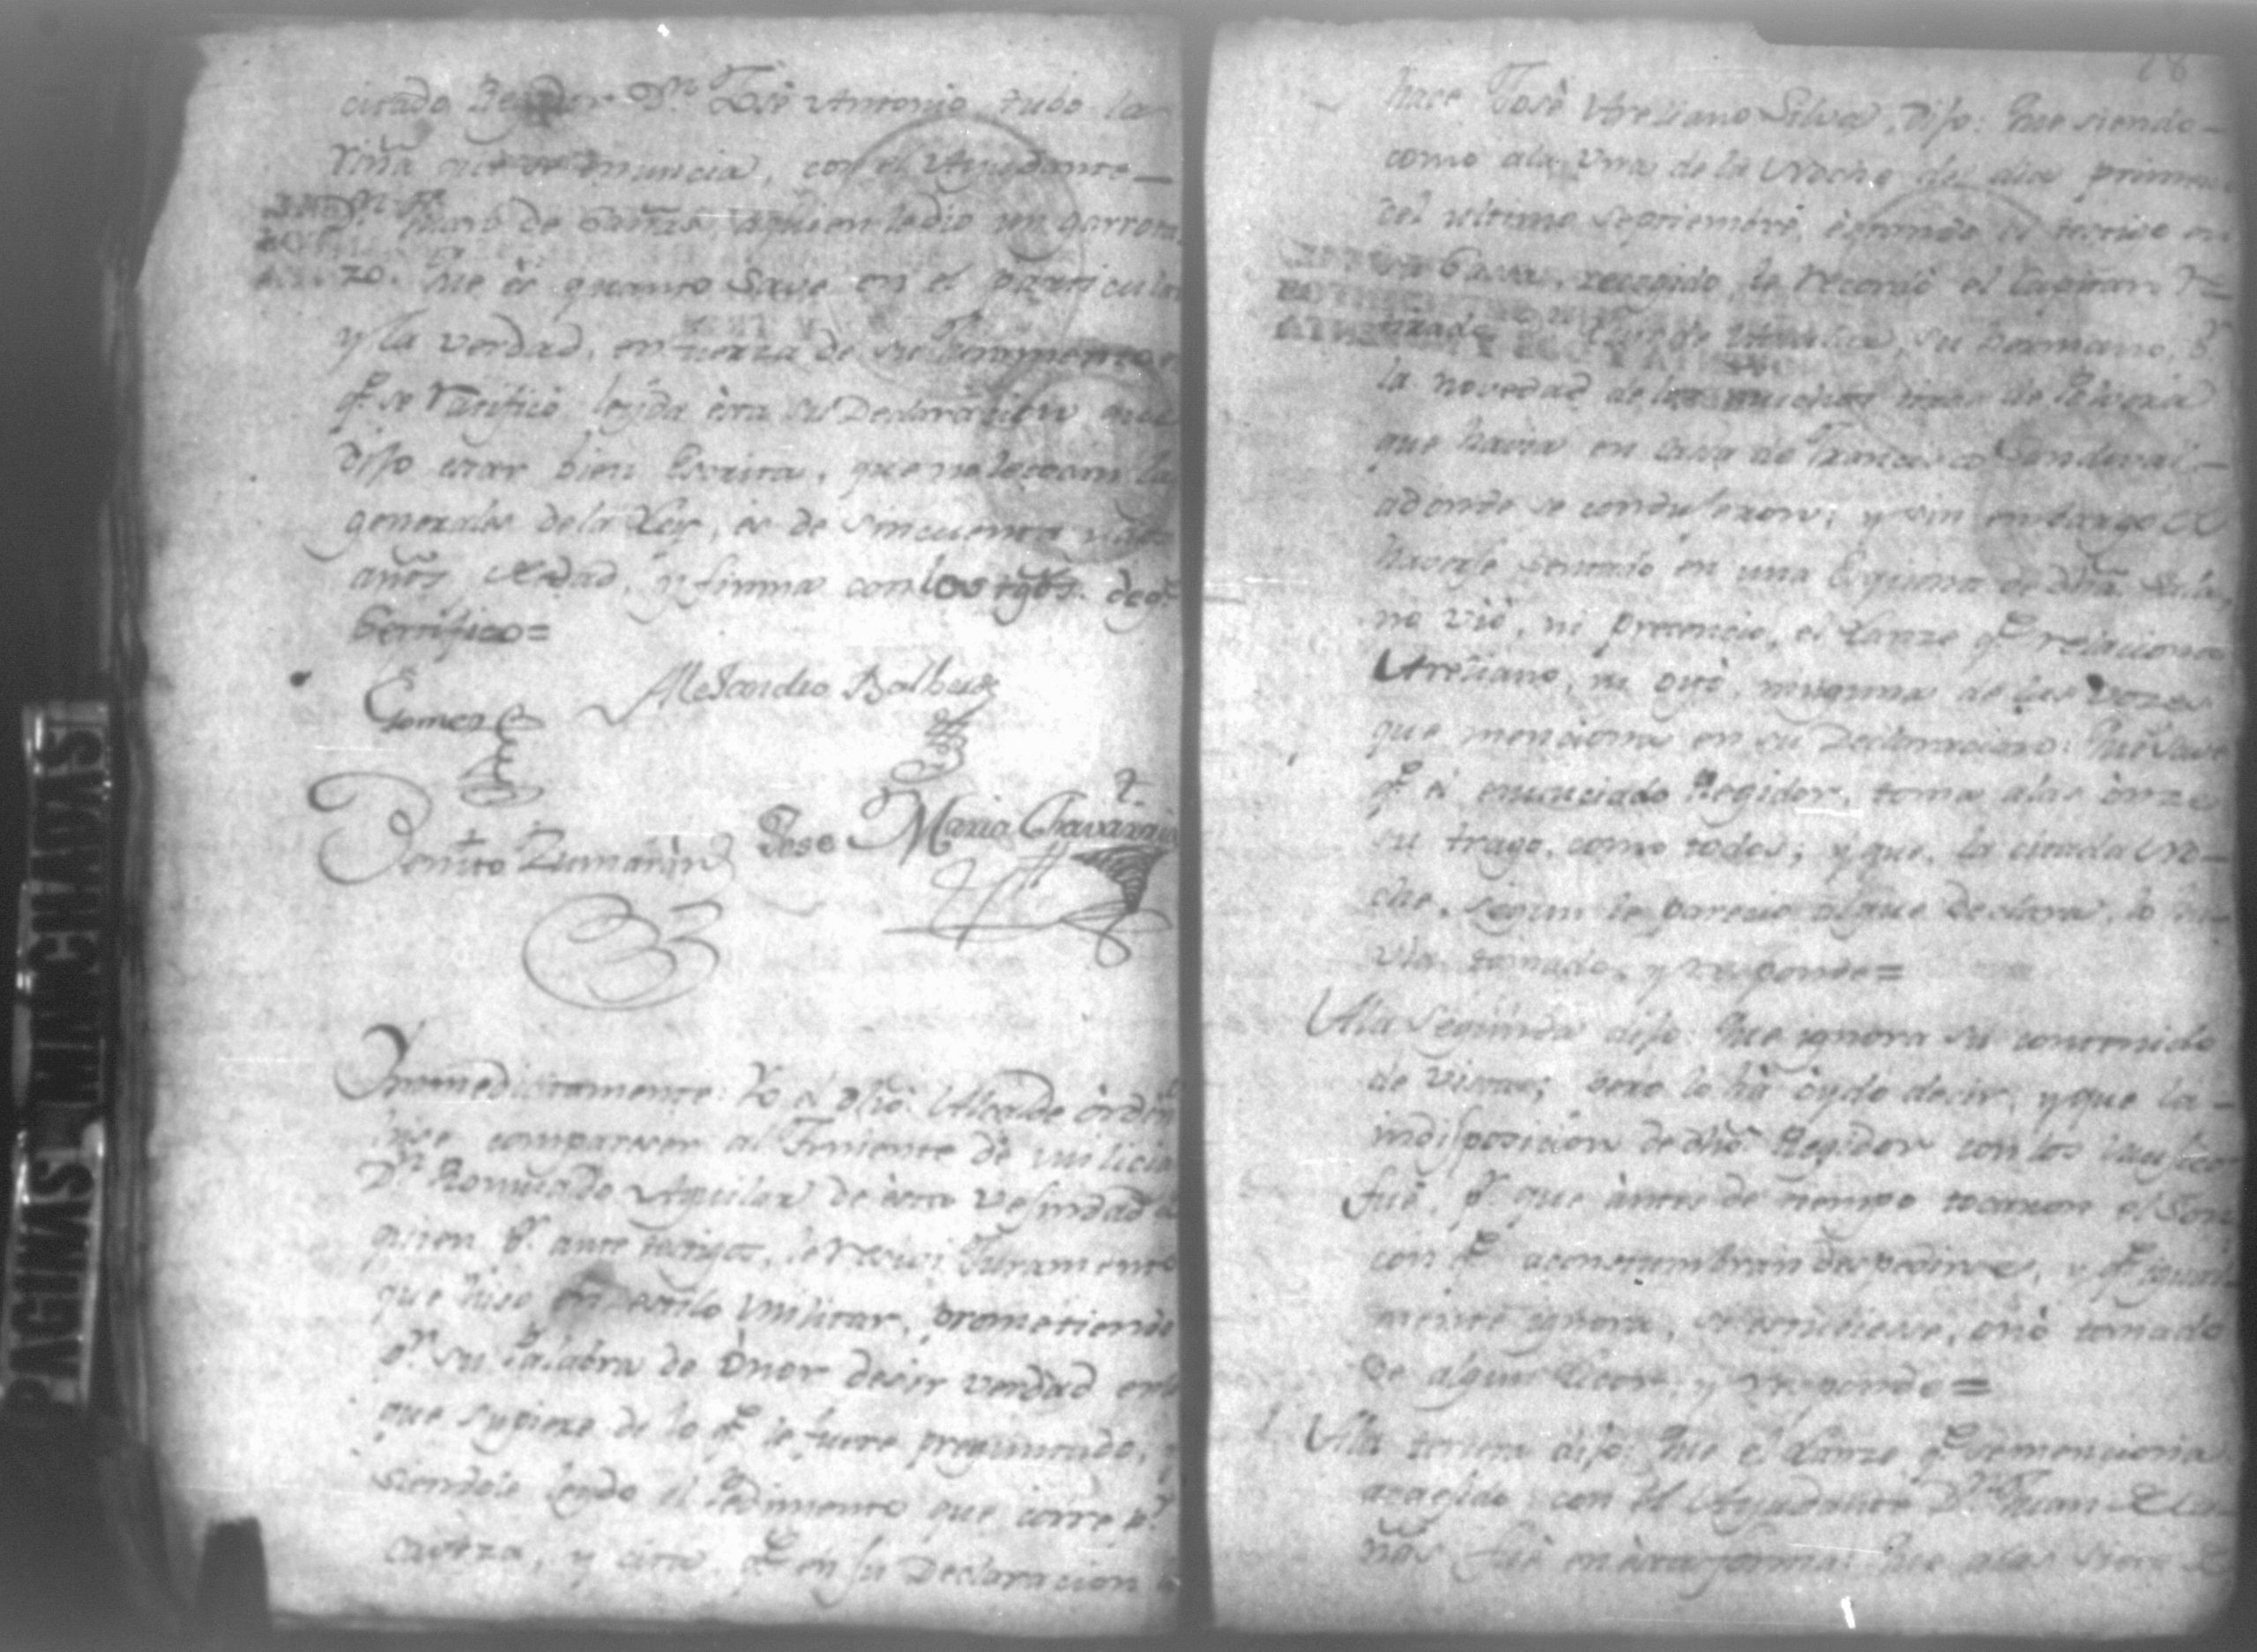 citado Regidor Dn. José Antonio tubo la
riña que se enuncia, con el Ayudante
Dn. de Cañas, aquien le dio un garrota
zo. Que és quanto Save en el particular
y la verdad, en fuerza de su Juramento en
qe. se ratificó leyda ésta su Declaracion, que
dijo estar bien Escrita, que no le tocan las
generales de la Ley, es de Sincuenta
años de edad, y firma con los tgos. de qe.
Certifico=
Gomez Alejandro Balbuz
Benito Zumarán Jose Maria Chavarria
Ynmediatamente: Yo el dho. Alcalde ordin
hise comparecer al Teniente de Milicia
Dn. Romualdo Aguilar de ésta Vesindad a
quien pr. ante testigos, le resiví Juramento
que hiso en estilo Militar, prometiendo
pr. su Palabra de Onor desir verdad en lo
que supiere de lo qe. le fuere preguntado, y
siendole leydo el Pedimento que corre pr.
cavesa, y cita, qe. en su Declaracion
18
hace José Areliano Silva, Dijo: Que siendo
como ala Una de la Noche del dia primero
del ultimo Septiembre, estando el testigo en
su Casa, recogido, le recordó el Capitan Re=
tirado Dn. su hermano, pr.
la novedad de las muchas
que havia en casa de Francisco Sandoval
adonde se condujeron; y sin embargo de
haverse sentado en una Esquina de dha. Sala,
no vió, ni presenció, el Lanze qe. relaciona
Areliano, ni oyó, ninguna de las Vozes
que menciona en su Declaracion: Que save
qe. el enunciado Regidor, toma alas onze
su trago, como todos; y que, la citada No-
che, segun le parecio alque declara, lo ha-
via tomado, y responde=
Ala Segunda dijo: Que ignora su contenido
de vista; pero lo ha oydo decir, y que la
indisposicion de dho. Regidor con los Musicos
fué, pr. que ántes de tiempo tocaron el Son
con qe. acostumbran despedirse, y qe. igual-
mente ignora, si estubiese, onó tomado
de algun Licor, y responde=
Ala tersera dijo: Que el Lanze qe. se menciona
acaecido con el Ayudante Dn. Juan de Ca-
ñas, fué en ésta forma: Que alas Siete de
PAGINAS MANCHADAS